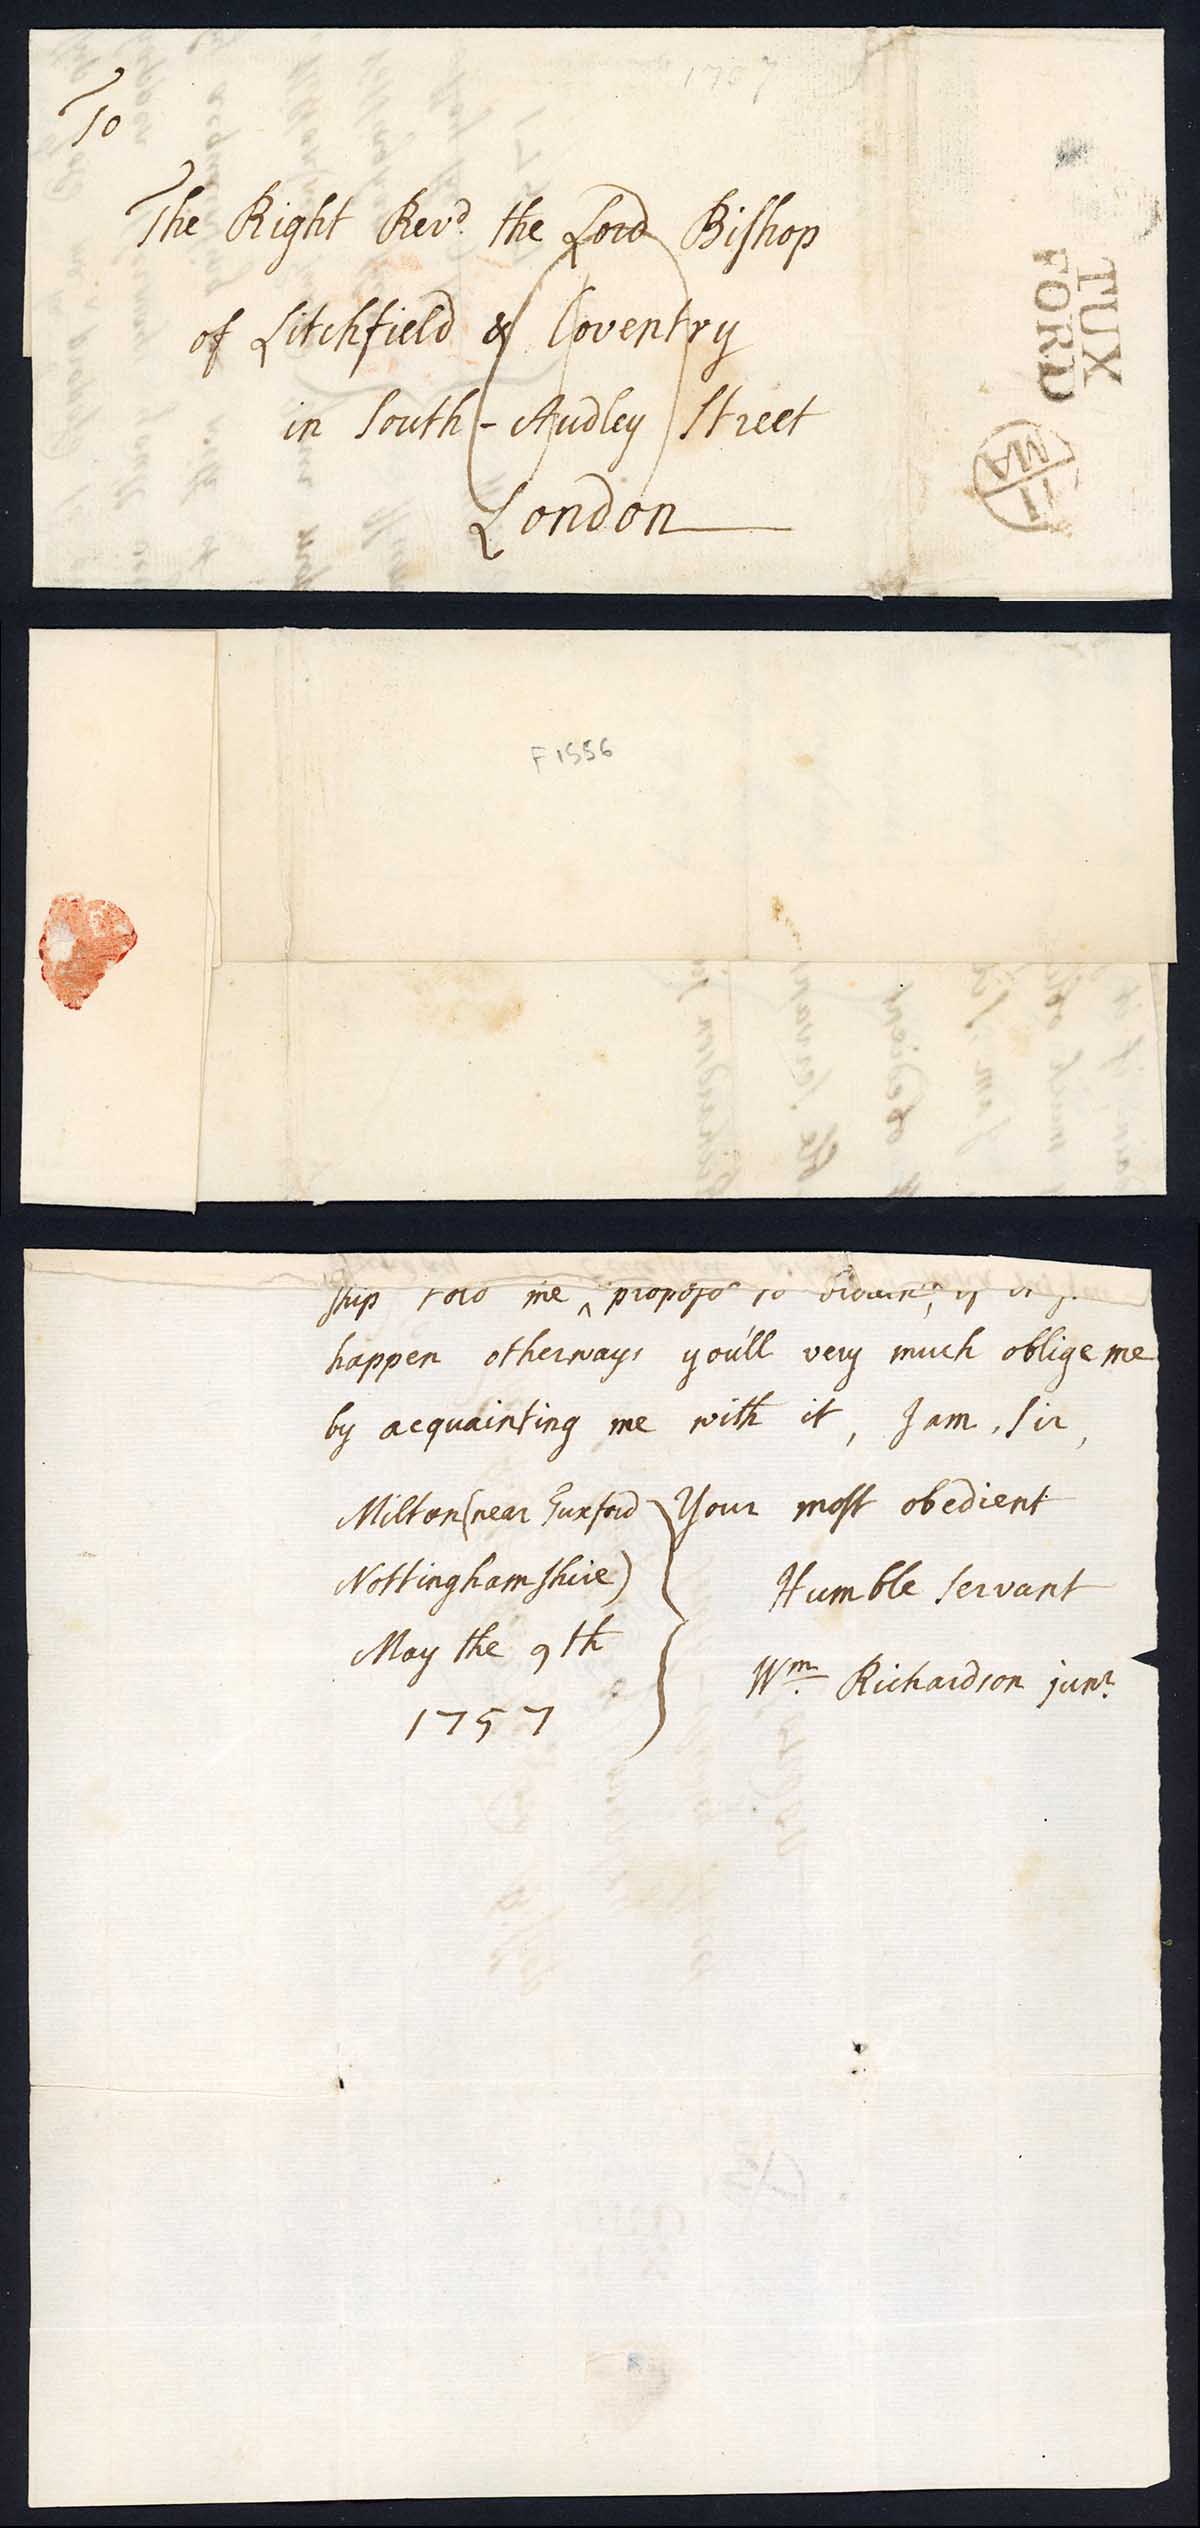 1757
To
The Right Revd. the Lord Bishop
of Litchfield & Coventry
in South-Audley Street
London
TUX
FORD
11
MA
F1556
ship told me ^ propos'd to
happen otherways you'll very much oblige me
by acquainting me with it, I am, Sir,
Milton (near Tuxford
Nottinghamshire)
May the 9th
1757
Your most obedient
Humble servant
Wm. Richardson junr.